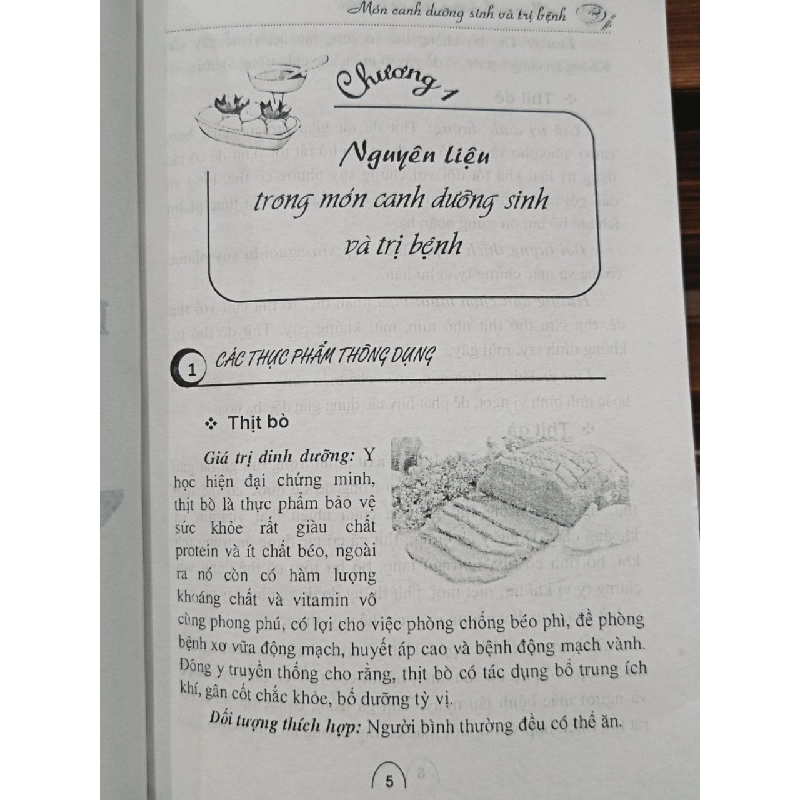 Món canh dưỡng sinh và trị bệnh
Chương 1
Nguyên liệu
trong món canh dưỡng sinh
và trị bệnh
1 CÁC THỰC PHẨM THÔNG DỤNG
❖ Thịt bò
Giá trị dinh dưỡng: Y
học hiện đại chứng minh,
thịt bò là thực phẩm bảo vệ
sức khỏe rất giàu chất
protein và ít chất béo, ngoài
ra nó còn có hàm lượng
khoáng chất và vitamin vô
cùng phong phú, có lợi cho việc phòng chống béo phì, đề phòng
bệnh xơ vữa động mạch, huyết áp cao và bệnh động mạch vành.
Đông y truyền thống cho rằng, thịt bò có tác dụng bổ trung ích
khí, gân cốt chắc khỏe, bổ dưỡng tỳ vị.
Đối tượng thích hợp: Người bình thường đều có thể ăn.
5